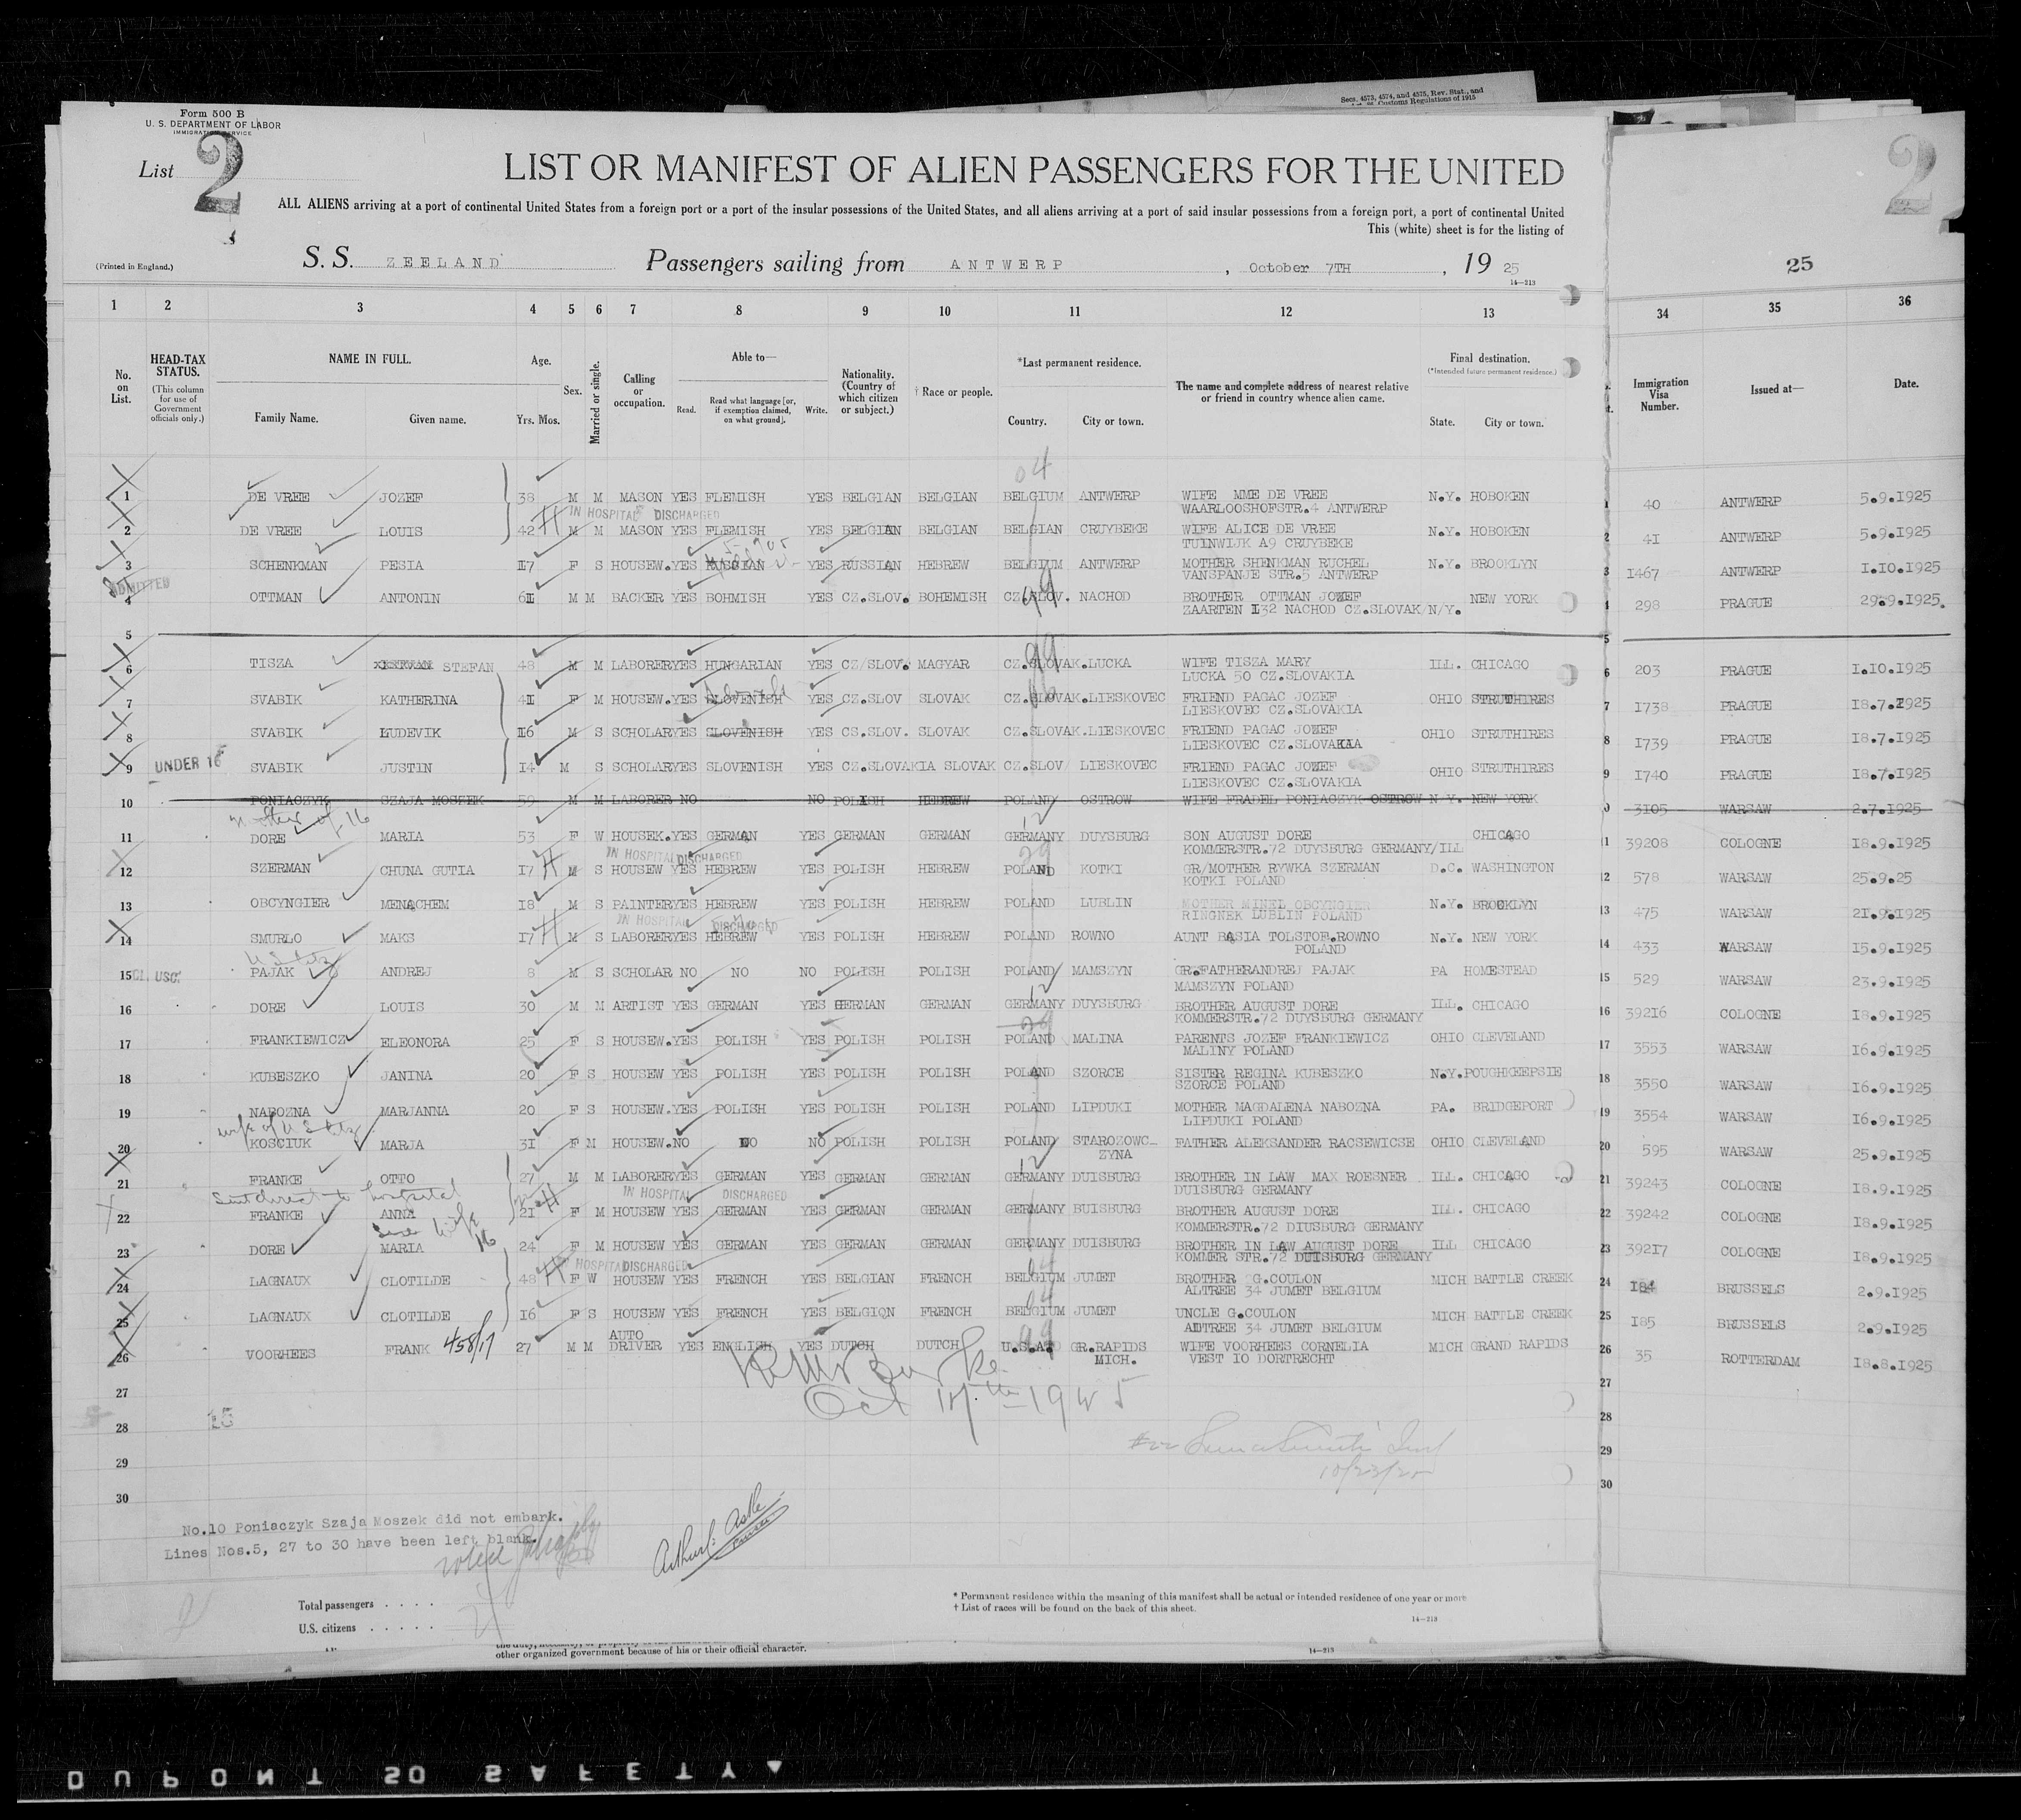 Secs. 4573, 4574, and 4575, Rev. Stat., and
Customs Regulations of 1915
Form 500 B
U. S. DEPARTMENT OF LABOR
IMMIGRATION SERVICE
List 2
2
LIST OR MANIFEST OF ALIEN PASSENGERS FOR THE UNITED
ALL ALIENS arriving at a port of continental United States from a foreign port or a port of the insular possessions of the United States, and all aliens arriving at a port of said insular possessions from a foreign port, a port of continental United
This (white) sheet is for the listing of
(Printed in England.)
S. S. ZEELAND Passengers sailing from ANTWERP, October 7TH, 19 25
25
14—213
1 2 3 4 5 6 7 8 9 10 11 12 13 34 35 36
No. on List.
HEAD-TAX STATUS.
(This column for use of Government officials only.)
NAME IN FULL.
Family Name. Given name.
Age.
Yrs. Mos.
Sex.
Married or single.
Calling or occupation.
Able to—
Read. Read what language [or, if exemption claimed, on what ground]. Write.
Nationality. (Country of which citizen or subject.)
† Race or people.
*Last permanent residence.
Country. City or town.
The name and complete address of nearest relative or friend in country whence alien came.
Final destination.
(*Intended future permanent residence.)
State. City or town.
Immigration Visa Number.
Issued at—
Date.
04
1 DE VREE JOZEF 38 M M MASON YES FLEMISH YES BELGIAN BELGIAN BELGIUM ANTWERP WIFE MME DE VREE N.Y. HOBOKEN 1 40 ANTWERP 5.9.1925
WAARLOOSHOFSTR.4 ANTWERP
IN HOSPITAL DISCHARGED
2 DE VREE LOUIS 42 H M M MASON YES FLEMISH YES BELGIAN BELGIAN BELGIAN CRUYBEKE WIFE ALICE DE VREE N.Y. HOBOKEN 2 41 ANTWERP 5.9.1925
TUINWIJK A9 CRUYBEKE
3 SCHENKMAN PESIA 17 F S HOUSEW. YES RUSSIAN YES RUSSIAN HEBREW BELGIUM ANTWERP MOTHER SHENKMAN RUCHEL N.Y. BROOKLYN 3 1467 ANTWERP 1.10.1925
VANSPANJE STR.5 ANTWERP
ADMITTED
4 OTTMAN ANTONIN 61 M M BACKER YES BOHMISH YES CZ.SLOV. BOHEMISH CZ.SLOV. NACHOD BROTHER OTTMAN JOZEF NEW YORK 4 298 PRAGUE 29.9.1925.
ZAARTEN 132 NACHOD CZ.SLOVAK/N/Y.
99
5 5
99
6 TISZA STEFAN 48 M M LABORER YES HUNGARIAN YES CZ/SLOV. MAGYAR CZ.SLOVAK. LUCKA WIFE TISZA MARY ILL. CHICAGO 6 203 PRAGUE 1.10.1925
LUCKA 50 CZ.SLOVAKIA
Slovak
7 SVABIK KATHERINA 41 F M HOUSEW. YES SLOVENISH YES CZ.SLOV SLOVAK CZ.SLOVAK. LIESKOVEC FRIEND PAGAC JOZEF OHIO STRUTHIRES 7 1738 PRAGUE 18.7.1925
LIESKOVEC CZ.SLOVAKIA
8 SVABIK LUDEVIK 16 M S SCHOLAR YES SLOVENISH YES CS.SLOV. SLOVAK CZ.SLOVAK. LIESKOVEC FRIEND PAGAC JOZEF OHIO STRUTHIRES 8 1739 PRAGUE 18.7.1925
LIESKOVEC CZ.SLOVAKIA
UNDER 16
9 SVABIK JUSTIN 14 M S SCHOLAR YES SLOVENISH YES CZ.SLOVAKIA SLOVAK CZ.SLOV/ LIESKOVEC FRIEND PAGAC JOZEF OHIO STRUTHIRES 9 1740 PRAGUE 18.7.1925
LIESKOVEC CZ.SLOVAKIA
10 PONIACZYK SZAJA MOSZEK 59 M M LABORER NO NO POLISH HEBREW POLAND OSTROW WIFE FRADEL PONIACZYK OSTROW N.Y. NEW YORK 3105 WARSAW 2.7.1925
mother of 16
12
11 DORE MARIA 53 F W HOUSEK. YES GERMAN YES GERMAN GERMAN GERMANY DUYSBURG SON AUGUST DORE CHICAGO 11 39208 COLOGNE 18.9.1925
KOMMERSTR.72 DUYSBURG GERMANY/ILL
IN HOSPITAL DISCHARGED
29
12 SZERMAN CHUNA GUTIA 17 H M S HOUSEW YES HEBREW YES POLISH HEBREW POLAND KOTKI GR/MOTHER RYWKA SZERMAN D.C. WASHINGTON 12 578 WARSAW 25.9.25
KOTKI POLAND
13 OBCYNGIER MENACHEM 18 M S PAINTER YES HEBREW YES POLISH HEBREW POLAND LUBLIN MOTHER MINEL OBCYNGIER N.Y. BROOKLYN 13 475 WARSAW 21.9.1925
RINGNEK LUBLIN POLAND
IN HOSPITAL DISCHARGED
14 SMURLO MAKS 17 H M S LABORER YES HEBREW YES POLISH HEBREW POLAND ROWNO AUNT BASIA TOLSTOF.ROWNO N.Y. NEW YORK 14 433 WARSAW 15.9.1925
POLAND
U S Citz
15 CL. USC. PAJAK ANDREJ 8 M S SCHOLAR NO NO NO POLISH POLISH POLAND MAMSZYN GR.FATHERANDREJ PAJAK PA HOMESTEAD 15 529 WARSAW 23.9.1925
MAMSZYN POLAND
12
16 DORE LOUIS 30 M M ARTIST YES GERMAN YES GERMAN GERMAN GERMANY DUYSBURG BROTHER AUGUST DORE ILL. CHICAGO 16 39216 COLOGNE 18.9.1925
KOMMERSTR.72 DUYSBURG GERMANY
29
17 FRANKIEWICZ ELEONORA 25 F S HOUSEW. YES POLISH YES POLISH POLISH POLAND MALINA PARENTS JOZEF FRANKIEWICZ OHIO CLEVELAND 17 3553 WARSAW 16.9.1925
MALINY POLAND
18 KUBESZKO JANINA 20 F S HOUSEW YES POLISH YES POLISH POLISH POLAND SZORCE SISTER REGINA KUBESZKO N.Y. POUGHKEEPSIE 18 3550 WARSAW 16.9.1925
SZORCE POLAND
19 NABOZNA MARJANNA 20 F S HOUSEW. YES POLISH YES POLISH POLISH POLAND LIPDUKI MOTHER MAGDALENA NABOZNA PA. BRIDGEPORT 19 3554 WARSAW 16.9.1925
LIPDUKI POLAND
wife of U S Citz
20 KOSCIUK MARJA 31 F M HOUSEW. NO NO NO POLISH POLISH POLAND STAROZOWC- FATHER ALEKSANDER RACSEWICSE OHIO CLEVELAND 20 595 WARSAW 25.9.1925
ZYNA
12
21 FRANKE OTTO 27 M M LABORER YES GERMAN YES GERMAN GERMAN GERMANY DUISBURG BROTHER IN LAW MAX ROESNER ILL. CHICAGO 21 39243 COLOGNE 18.9.1925
DUISBURG GERMANY
Sent direct to hospital
IN HOSPITAL DISCHARGED
22 FRANKE ANNA 21 H F M HOUSEW YES GERMAN YES GERMAN GERMAN GERMANY BUISBURG BROTHER AUGUST DORE ILL. CHICAGO 22 39242 COLOGNE 18.9.1925
KOMMERSTR.72 DIUSBURG GERMANY
wife 16
23 DORE MARIA 24 F M HOUSEW YES GERMAN YES GERMAN GERMAN GERMANY DUISBURG BROTHER IN LAW AUGUST DORE ILL CHICAGO 23 39217 COLOGNE 18.9.1925
KOMMER STR.72 DUISBURG GERMANY
IN HOSPITAL DISCHARGED
04
24 LAGNAUX CLOTILDE 48 H F W HOUSEW YES FRENCH YES BELGIAN FRENCH BELGIUM JUMET BROTHER G.COULON MICH BATTLE CREEK 24 184 BRUSSELS 2.9.1925
ALTREE 34 JUMET BELGIUM
04
25 LAGNAUX CLOTILDE 16 F S HOUSEW YES FRENCH YES BELGIQN FRENCH BELGIUM JUMET UNCLE G.COULON MICH BATTLE CREEK 25 185 BRUSSELS 2.9.1925
ADTREE 34 JUMET BELGIUM
AUTO
99
26 VOORHEES FRANK 458/17 27 M M DRIVER YES ENGLISH YES DUTCH DUTCH U.S.A. GR.RAPIDS WIFE VOORHEES CORNELIA MICH GRAND RAPIDS 26 35 ROTTERDAM 18.8.1925
MICH. VEST 10 DORTRECHT
27 27
28 15 28
29 29
30 30
10/23/25
No.10 Poniaczyk Szaja Moszek did not embark.
Lines Nos.5, 27 to 30 have been left blank.
Total passengers . . . .
U.S. citizens . . . . .
* Permanent residence within the meaning of this manifest shall be actual or intended residence of one year or more
† List of races will be found on the back of this sheet.
14—213
other organized government because of his or their official character.
14—213
DUPONT 50 SAFETY